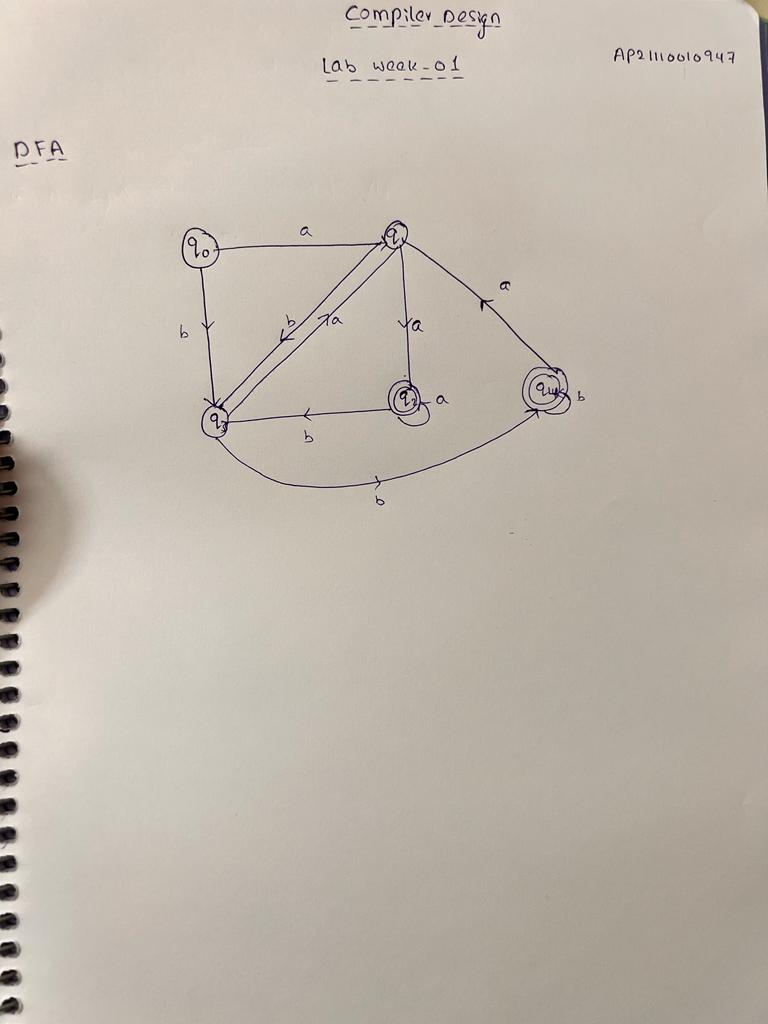 Compiler Design
Lab week-01
AP21110010947
DFA
q0
a
q1
b
b
a
a
a
q3
b
q2
a
q4
b
b